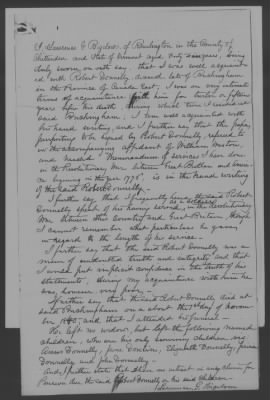 I, Lawrence G Bigelow, of Burlington in the County of
Chittenden and State of Vermont aged sixty years, being
duly sworn, on oath say, that I was well acquaint-
ed with Robert Donnelly, deceased late of Buckingham
in the Province of Canada East; I was on very intimate
terms of acquaintance with him for twelve or fifteen
years before his death during which time I resided at
said Buckingham. I am well acquainted with
his hand writing, and I further say that the paper
purporting to be signed by Robert Donnelly referred to
in the accompanying affidavit of William
and headed "Memorandum of services I have done
in the Revolutionary War between Great Britain and
beginning in the year 1776" is in the hand writing
of the said Robert Donnelly.
I further say, that I frequently heard the said Robert
Donnelly speak of his having served, as a soldier in the Revolutionary
War between this Country and Great Britain, though
I cannot remember what particulars he gave
in regard to the length of his service.
I further say that the said Robert Donnelly was a
man of undoubted truth and integrity and that
I would put implicit confidence in the truth of his
statements; During my acquaintance with him he
was, however very poor.
I further say, that the said Robert Donnelly died at
said Buckingham on or about the day of Novem-
ber and that I attended his funeral.
He left no widow, but left the following named
children, who are his only surviving children, viz:
Donnelly, Jane Donnelly, Elizabeth Donnelly, James
Donnelly and John Donnelly.
And I further state that I have no interest in any claim for
Pension due the said Robert Donnelly or his said children.
Lawrence G. Bigelow